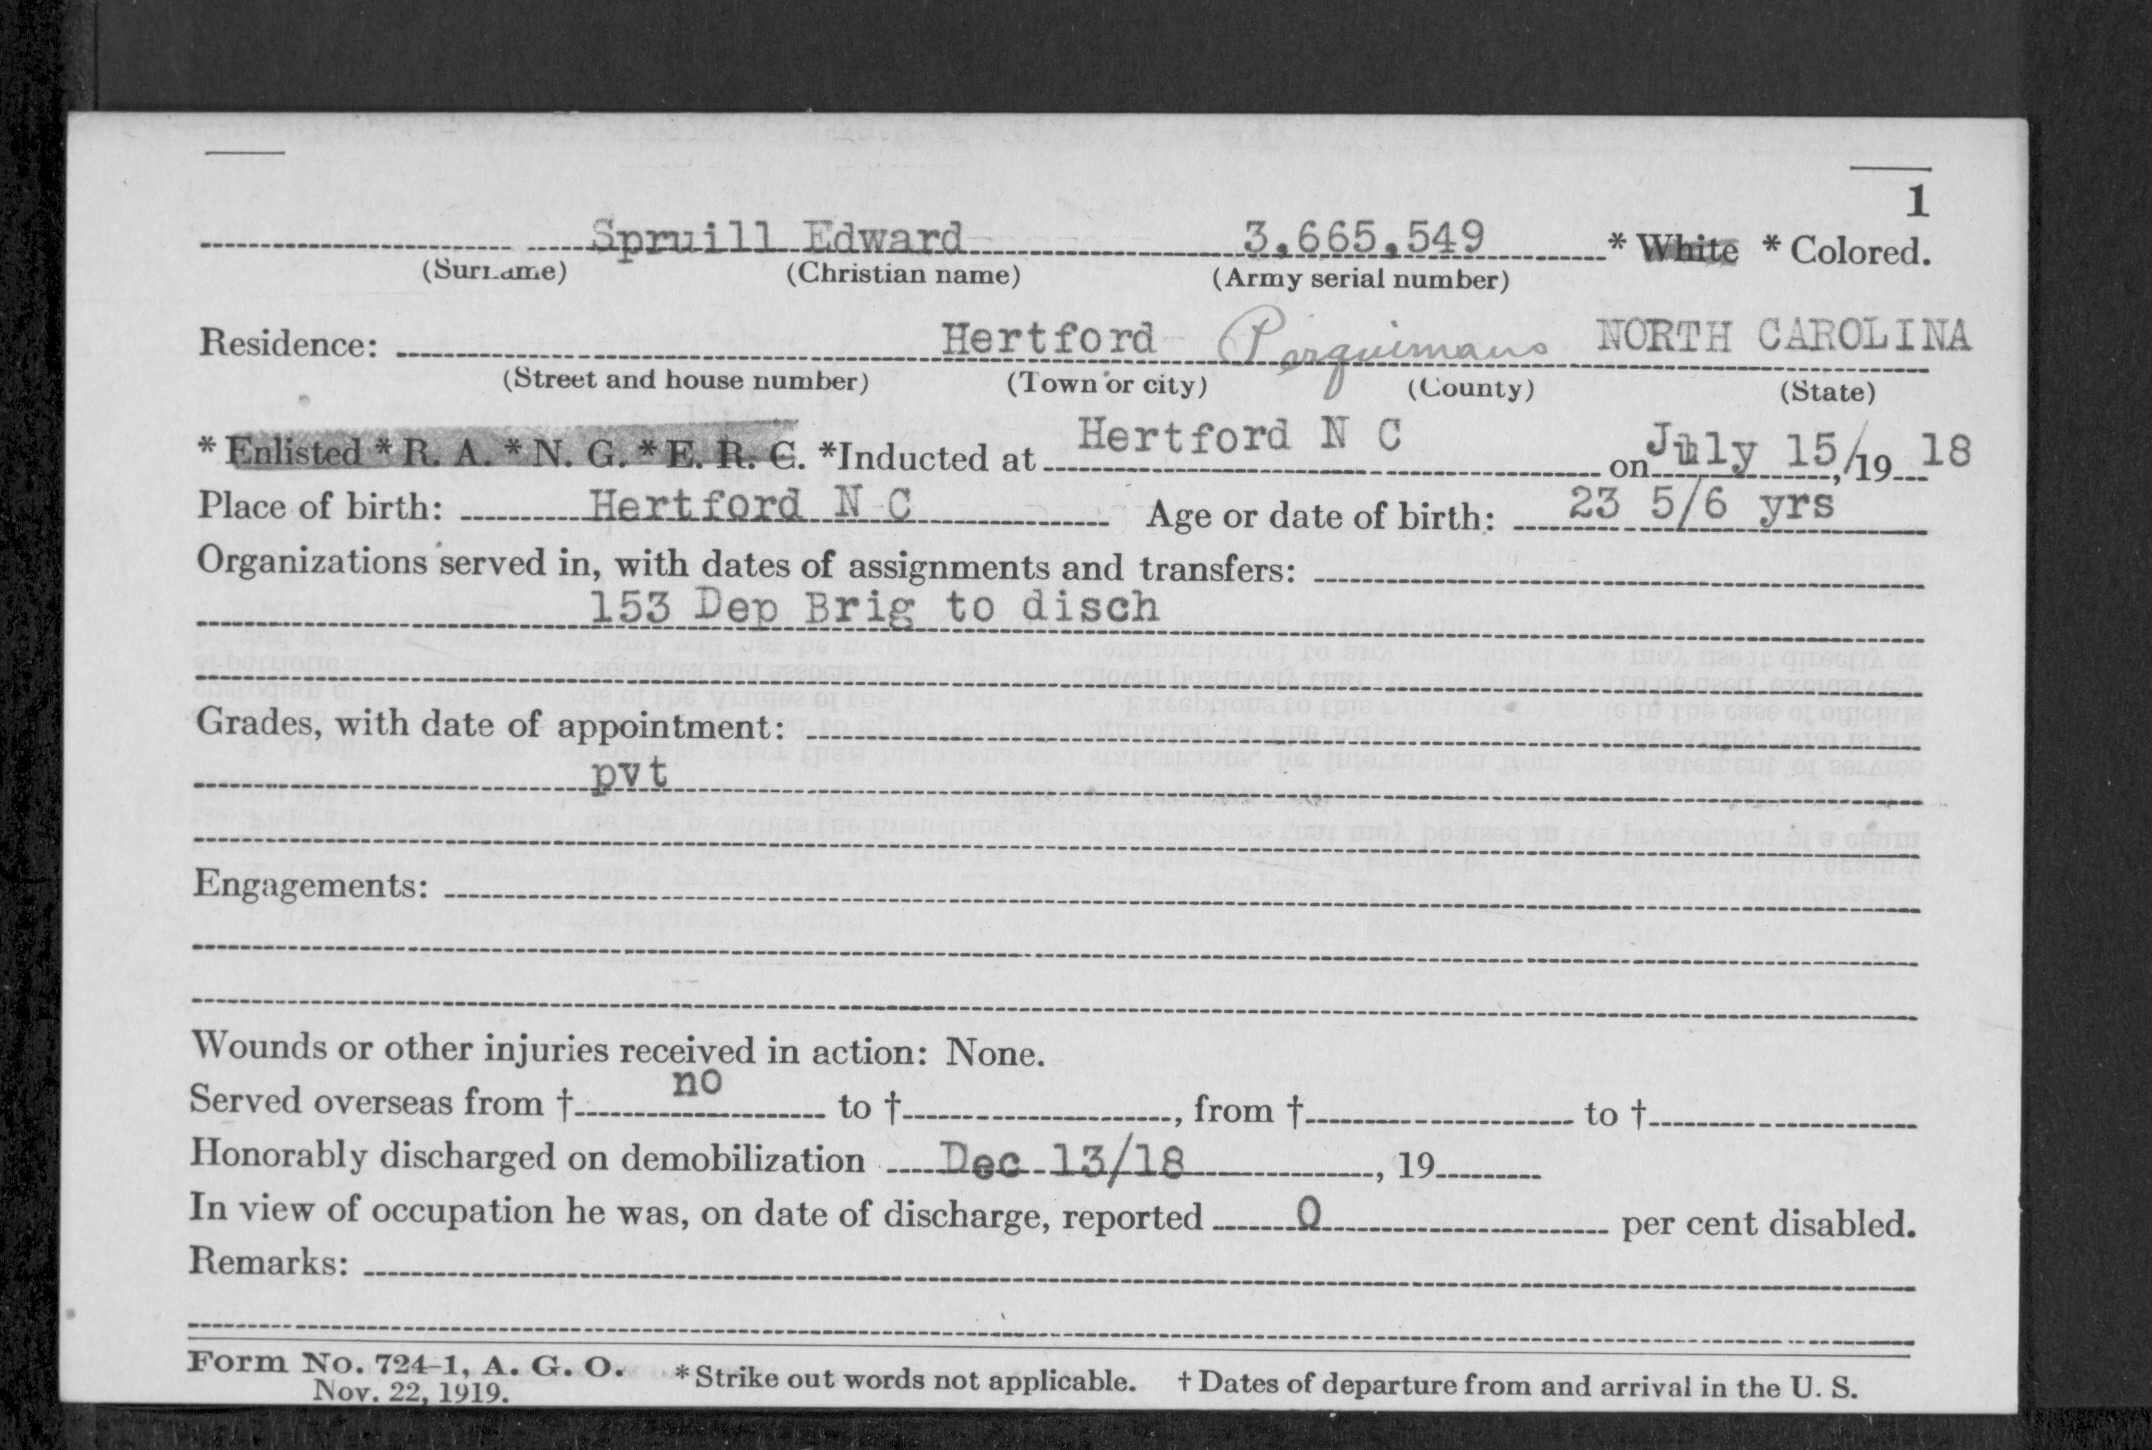 1
Spruill Edward 3,665,549 * White * Colored.
(Surname) (Christian name) (Army serial number)
Residence: Hertford Perquimans NORTH CAROLINA
(Street and house number) (Town or city) (County) (State)
* Enlisted * R. A. * N. G. * E. R. C. *Inducted at Hertford N C on July 15/, 19 18
Place of birth: Hertford N C Age or date of birth: 23 5/6 yrs
Organizations served in, with dates of assignments and transfers:
153 Dep Brig to disch
Grades, with date of appointment:
pvt
Engagements:
Wounds or other injuries received in action: None.
Served overseas from † no to †, from † to †
Honorably discharged on demobilization Dec 13/18, 19
In view of occupation he was, on date of discharge, reported 0 per cent disabled.
Remarks:
Form No. 724-1, A. G. O. * Strike out words not applicable. † Dates of departure from and arrival in the U. S.
Nov. 22, 1919.